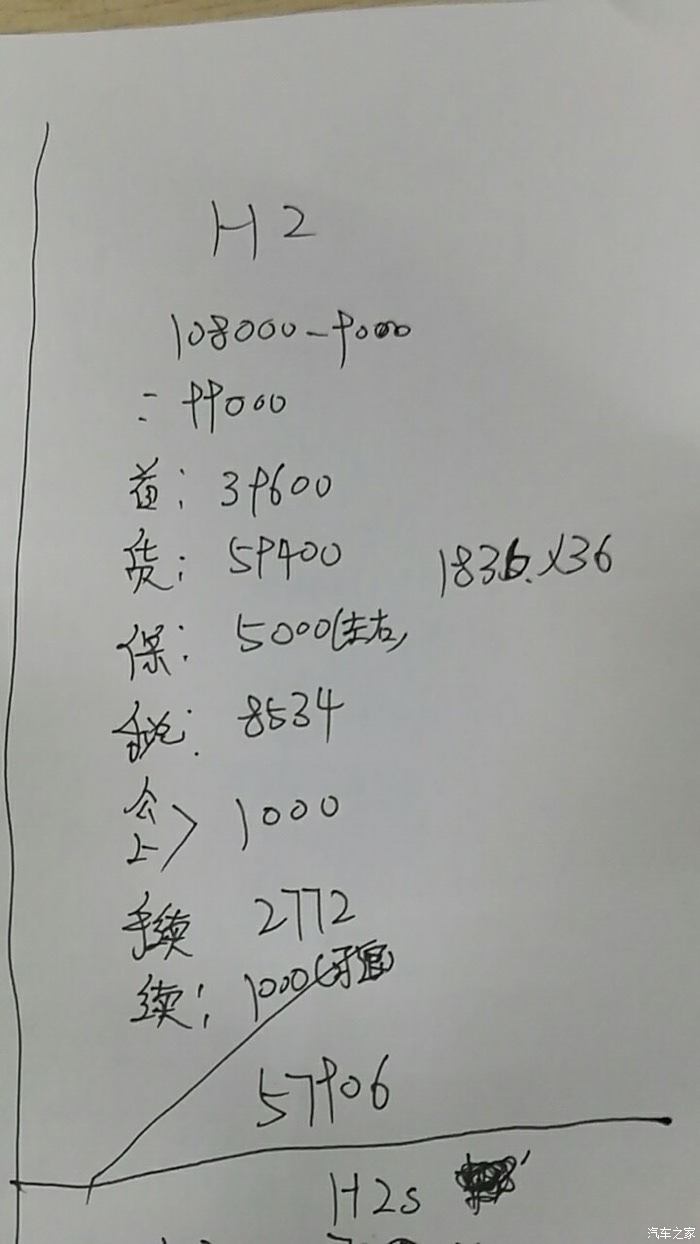 H2
108000-9000
=99000
首: 39600
贷: 59400 1836.×36
保: 5000(左右)
税: 8534
公
上> 1000
手续 2772
续: 1000(可退)
57906
H2s
汽车之家